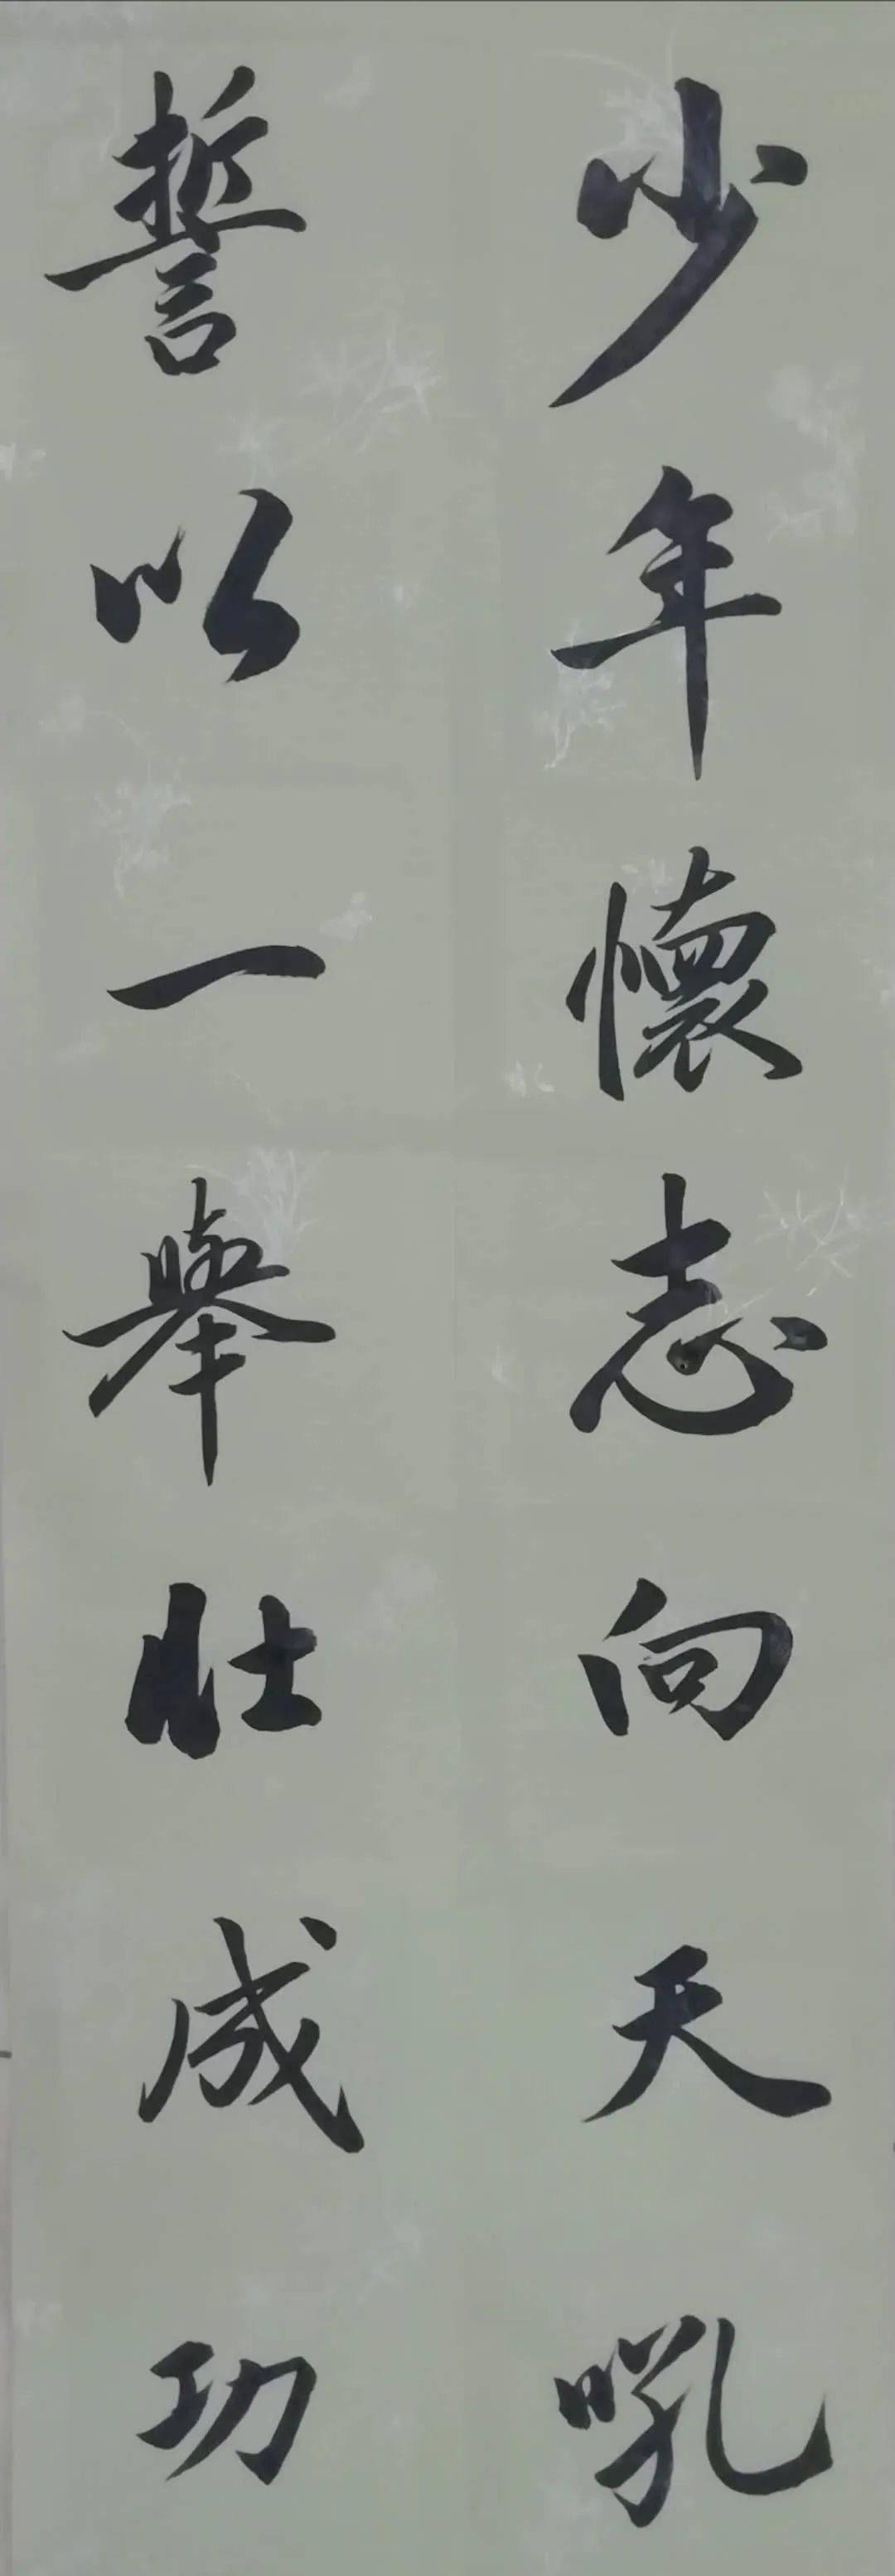 少年懷志向天吼
誓以一舉壯成功